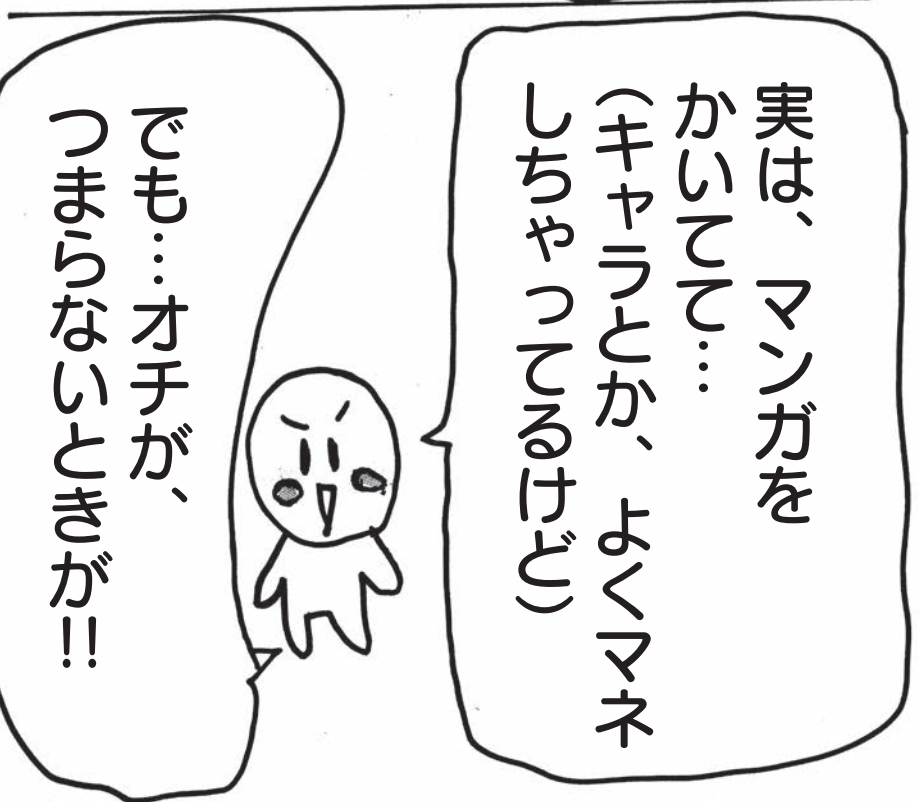 実は、マンガを
かいてて…
（キャラとか、よくマネ
しちゃってるけど）
でも…オチが、
つまらないときが!!